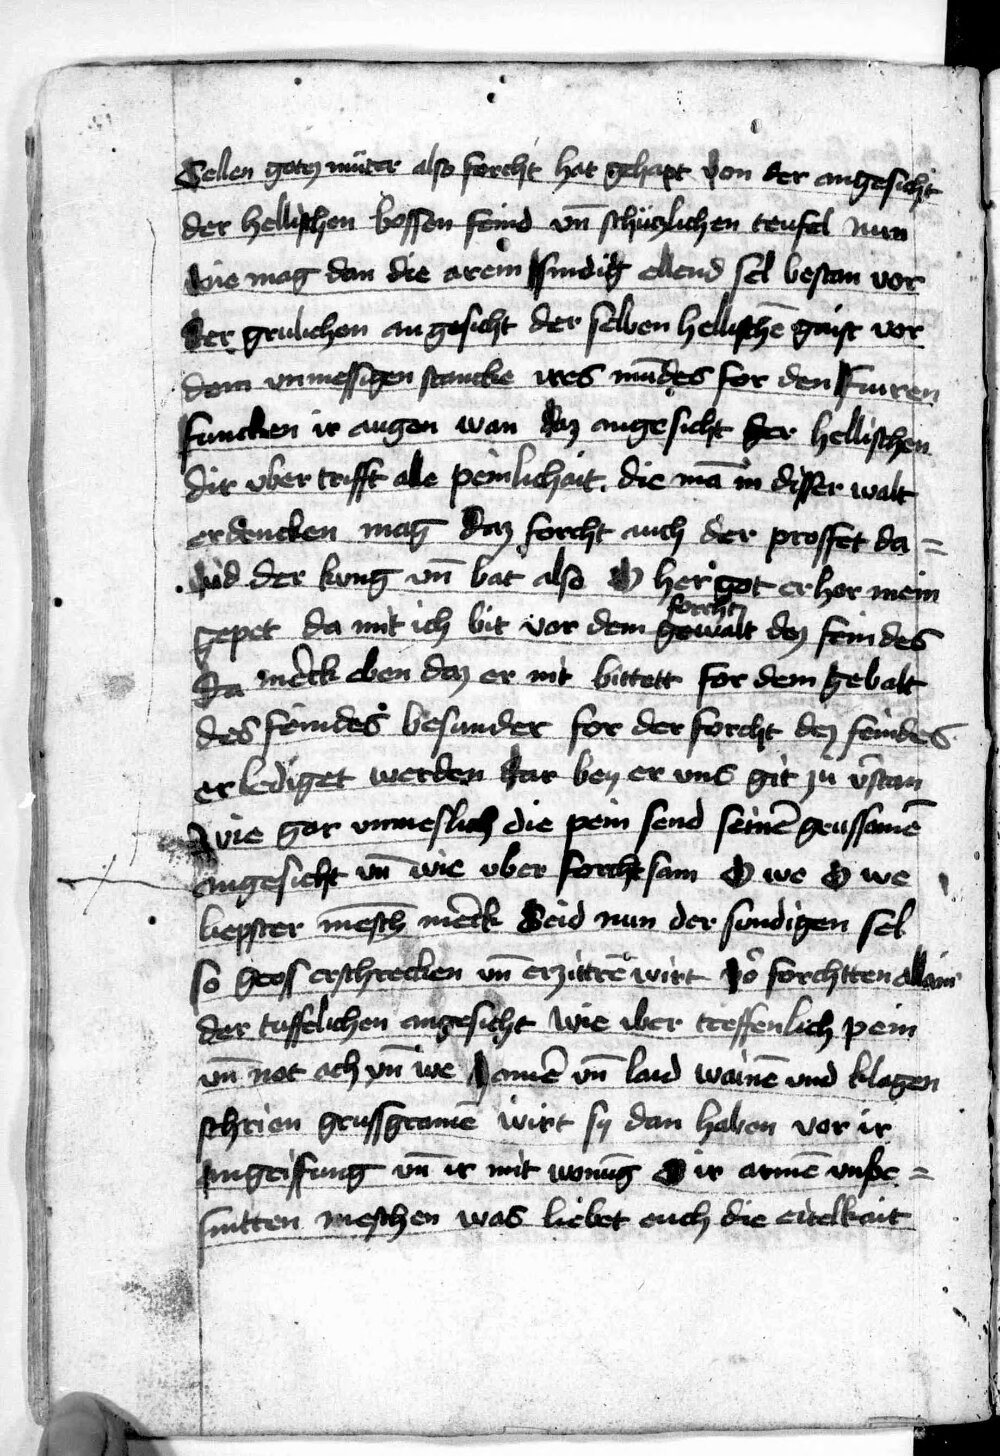 Sellen gotz můter also forcht hat gehapt von der angesicht
der hellischen bossen feind vn̄ schüczlichen teufel Nun
wie mag dan die arem sindig ellend sel bestan vor
der grulichen angesicht der selben hellischē gaist vor
dem vnmessigen stancke ires mūdes for den fiuren
funcken ir augen wan daz angesicht der hellischen
dir uber trifft alle peinlichait. die mā in disser walt
erdencken mag Daz forcht auch der proffet da =
uid der kung vn̄ bat also O her got erhor mein
gepet da mit ich bit vor dem gewalt dez feindes
forcht
da mēck eben daz er nit bittett for dem gebalt
des feindes besunder for der forcht dez feindes
erlediget werden Dar bey er uns git zů v̄stan
Wie gar unmeslich die pein send seinē grussamē
angesicht vn̄ wie uber forchtsam O we O we
liepster mēsch mēck Seid nun der sundigen sel
so gros erschrecken vn̄ erzittrē wirt vō forchtten allain
der tuffelichen angesicht Wie uber treffenlich pein
vn̄ not ach vn̄ we Jamē vn̄ laid wainē und klagen
schrien grussgramē wirt sy dan haben vor ir
angeiffung vn̄ ir mit wonūg O ir armē unbe =
sintten meschen was liebet euch die eitelkait